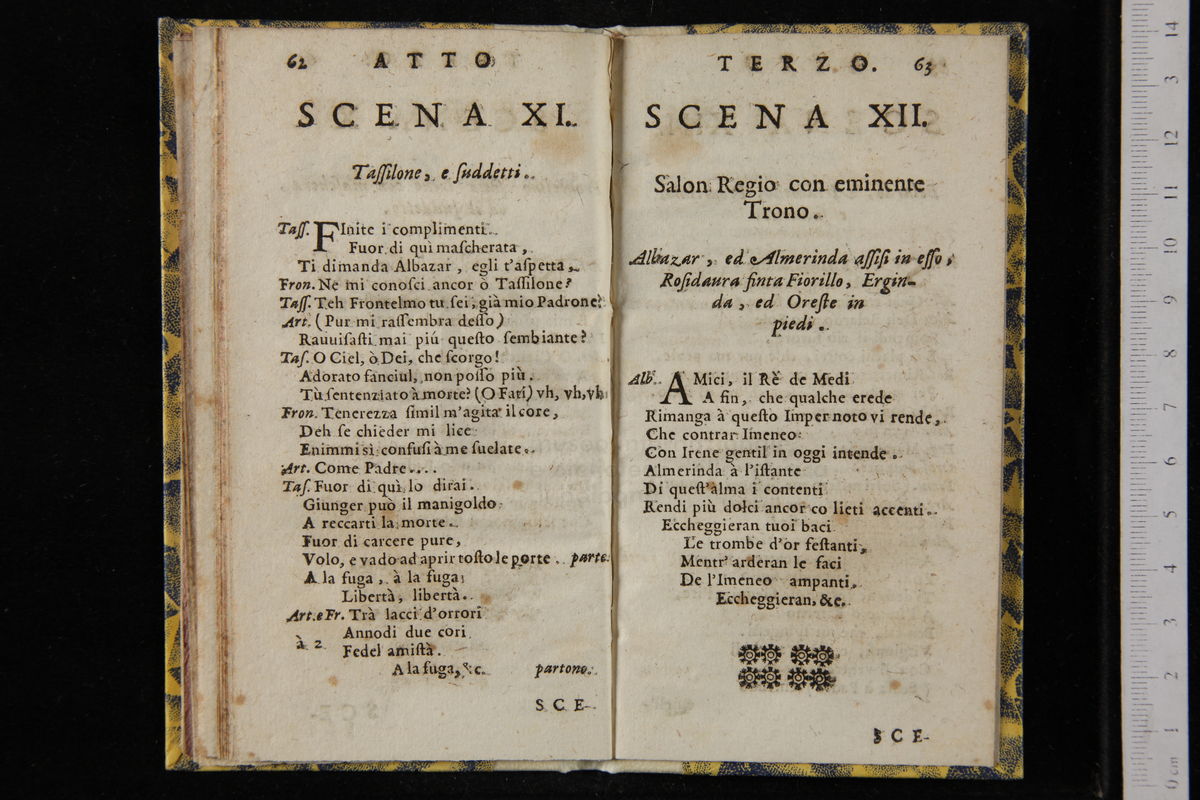 62 ATTO
SCENA XI.
Taſſilone, e ſuddetti.
Taſſ. FInite i complimenti.
Fuor di quì maſcherata,
Ti dimanda Albazar, egli t'aſpetta,
Fron. Ne mi conoſci ancor ò Taſſilone?
Taſſ. Teh Frontelmo tu ſei, già mio Padrone?
Art. (Pur mi raſſembra deſſo)
Rauuiſaſti mai piú queſto ſembiante?
Taſ. O Ciel, ò Dei, che ſcorgo!
Adorato fanciul, non poſſo più.
Tù ſentenziato à morte? (O Fati) vh, vh, vh
Fron. Tenerezza ſimil m'agita il core,
Deh ſe chieder mi lice
Enimmi sì confuſi à me ſuelate.
Art. Come Padre....
Taſ. Fuor di quì lo dirai.
Giunger può il manigoldo
A reccarti la morte.
Fuor di carcere pure,
Volo, e vado ad aprir toſto le porte. parte.
A la fuga, à la fuga,
Libertà, libertà.
Art. e Fr. Trà lacci d'orrori
Annodi due cori
à 2 Fedel amiſtà.
A la fuga, &c. partono.
SCE-
TERZO. 63
SCENA XII.
Salon Regio con eminente
Trono.
Albazar, ed Almerinda aſſiſi in eſſo,
Roſidaura finta Fiorillo, Ergin-
da, ed Oreſte in
piedi.
Alb. AMici, il Rè de Medi
A fin, che qualche erede
Rimanga à queſto Imper noto vi rende,
Che contrar Imeneo
Con Irene gentil in oggi intende.
Almerinda à l'iſtante
Di queſt'alma i contenti
Rendi più dolci ancor co lieti accenti.
Eccheggieran tuoi baci
Le trombe d'or feſtanti,
Mentr' arderan le faci
De l'Imeneo ampanti.
Eccheggieran, &c.
SCE-
14
13
12
11
10
9
8
7
6
5
4
3
2
1
0 cm